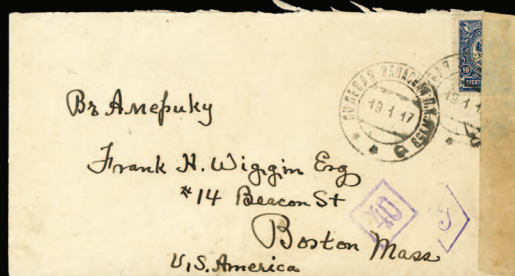 Въ Америку
Frank H. Wiggin Esq
#14 Beacon St
Boston Mass
U.S. America
19 1 17
19 1 1
40
10